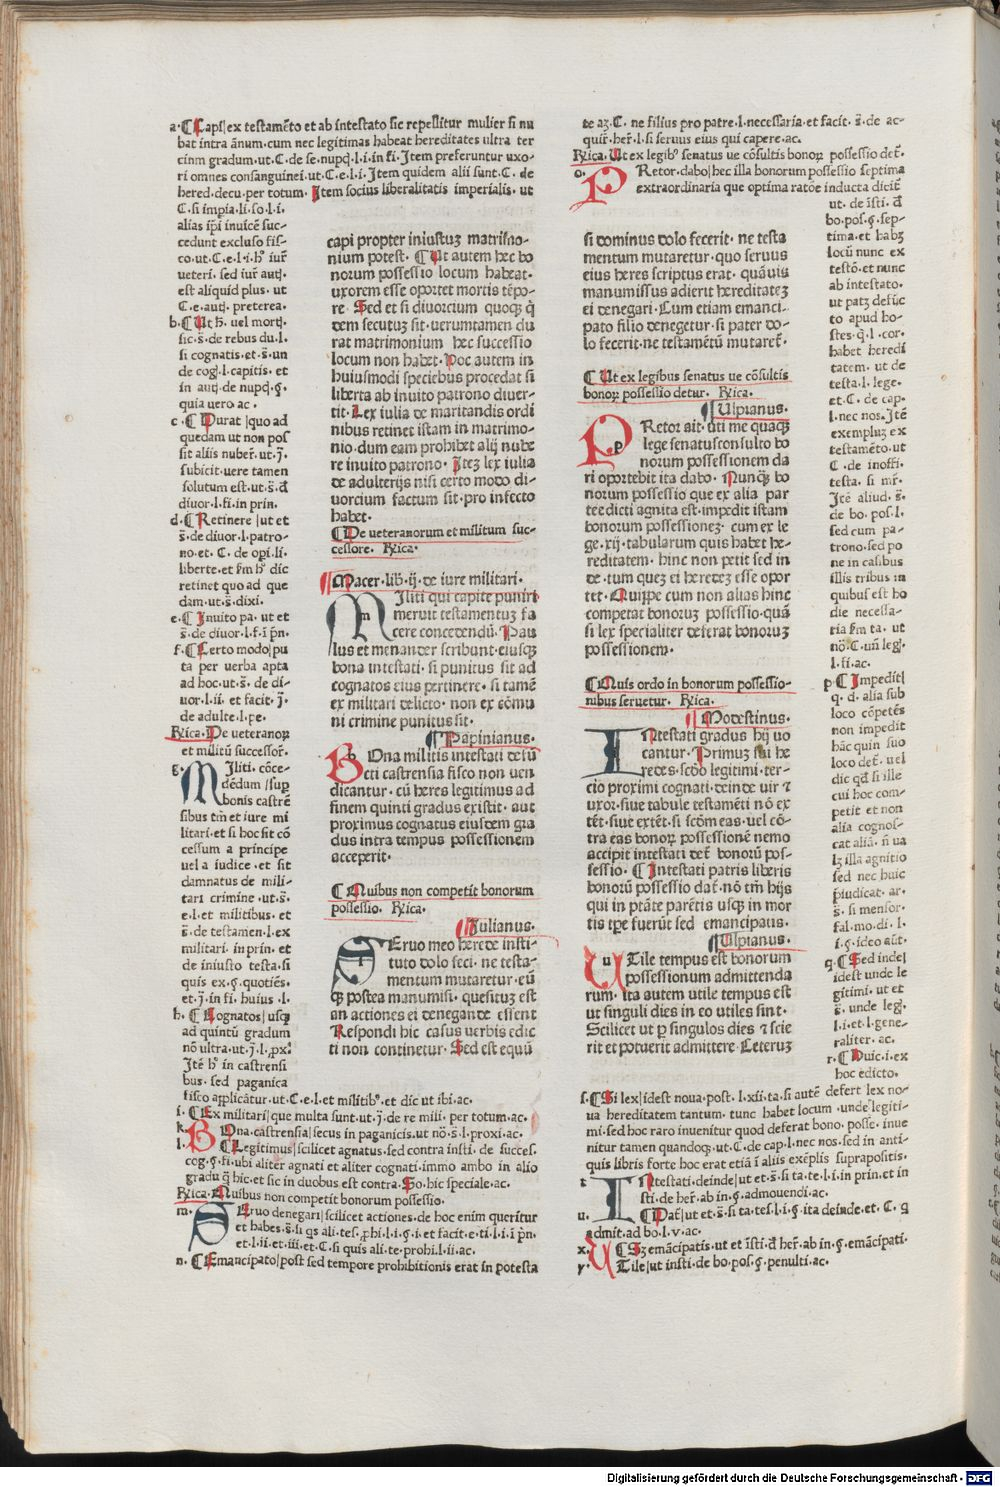 a. ¶ Capi|ex testamēto et ab intestato sic repellitur mulier si nu
bat intra ānum. cum nec legitimas habeat hereditates ultra ter
cium gradum. ut. C. de se. nupt. l. i. in fi. Item preferuntur uxo-
ri omnes consanguinei. ut. C. e. l. i. Item quidem alii sunt. C. de
hered. decu. per totum. Item socius liberalitatis imperialis. ut
C. si impia. li. so. l. i.
alias ipi inuicē suc-
cedunt excluso fis-
co. ut. C. e. l. i.
est aliquid plus. ut
C. e. autj. preterea.
b. ¶ Ut
si cognatis. et. s̄. un
de cog. l. capitis. et
quia uero ac.
c. ¶ Durat |quo ad
quedam ut non pos
subicit. uere tamen
solutum est. ut. s̄. đ
diuor. l. fi. in prin.
d. ¶ Retinere |ut et
s̄. de diuor. l. patro-
no. et. C. de opi. li.
retinet quo ad que
dam. ut. s̄. dixi.
e. ¶ Inuito pa. ut et
f. ¶ Certo modo|pu
ta per uerba apta
ad hoc. ut. s̄. de di-
uor. l. ii. et facit. j̄.
de adulte. l. pe.
Rica. De ueteranoꝝ
et militū successoꝝ.
g. Militi. cōce-
dēdum |sup
bonis castrē
sibus tm̄ et iure mi
litari. et si hoc sit cō
cessum a principe
uel a iudice. et sit
damnatus de mili-
tari crimine. ut. s̄.
e. l. et militibus. et
s̄. de testamen. l. ex
militari. in prin. et
de iniusto testa. si
quis ex. §. quotiēs.
et. j̄. in fi. huius. l.
h. ¶ Cognatos| usqꝫ
ad quintū gradum
nō ultra. ut. j̄. l. pxᵃ
Itē in castrensi
bus. sed paganica
fisco applicātur. ut. C. e. l. et militibꝰ. et dic ut ibi. ac.
i. ¶ Ex militari|que multa sunt. ut. j̄. de re mili. per totum. ac.
k. Bona. castrensia|secus in paganicis. ut nō. s̄. l. proxi. ac.
l. ¶ Legitimus| scilicet agnatus. sed contra insti. de succes.
cog. §. fi. ubi aliter agnati et aliter cognati. immo ambo in alio
gradu q̄ hic. et sic in duobus est contra. So. hic speciale. ac.
Rica. Quibus non competit bonorum possessio.
m. Seruo denegari|scilicet actiones. de hoc enim queritur
et habes. s̄. si qs ali. tes. prohi. l. i. §. i. et facit. e. ti. l. i. i pn.
et. l. ii. et iii. et. C. si quis ali. te. prohi. l. ii. ac.
n. ¶ Emancipato|post sed tempore prohibitionis erat in potesta
capi propter iniustuꝫ matrimo-
nium potest. ¶ Ut autem hec bo
norum possessio locum habeat.
uxorem esse oportet mortis tēpo-
re. Sed et si diuorcium quoqꝫ q̄
dem secutuꝫ sit. uerumtamen du
rat matrimonium hec successio
locum non habet. Hoc autem in
huiusmodi speciebus procedat si
liberta ab inuito patrono diuer-
tit. Lex iulia de maritandis ordi
nibus retinet istam in matrimo-
nio. dum eam prohibet alij nube
re inuito patrono. Iteꝫ lex iulia
de adulterijs nisi certo modo di-
uorcium factum sit. pro infecto
habet.
¶ De ueteranorum et militum suc-
cessore. Rica.
¶ Macer. lib. ij. de iure militari.
Militi qui capite puniri
meruit testamentuꝫ fa
cere concedendū. Pau
lus et menander scribunt. eiusqꝫ
bona intestati. si punitus sit ad
cognatos eius pertinere. si tamē
ex militari delicto. non ex cōmu
ni crimine punitus sit.
¶ Papinianus.
Bona militis intestati defū
cti castrensia fisco non uen
dicantur. cū heres legitimus ad
finem quinti gradus existit. aut
proximus cognatus eiusdem gra
dus intra tempus possessionem
acceperit.
¶ Quibus non competit bonorum
possessio. Rica.
¶ Iulianus.
Seruo meo herede insti-
tuto dolo feci. ne testa-
mentum mutaretur. eū
qꝫ postea manumisi. quesituꝫ est
an actiones ei denegande essent
Respondi hic casus uerbis edic
ti non continetur. Sed est equū
te aꝫ. C. ne filius pro patre. l. necessaria. et facit. s̄. de ac-
quir̄. her̄. l. si seruus eius qui capere. ac.
Rica. Ut ex legibꝰ senatus ue cōsultis bonoꝝ possessio det̄.
o. Pretor. dabo| hec illa bonorum possessio septima
extraordinaria que optima ratōe inducta dicit̄
si dominus dolo fecerit. ne testa
mentum mutaretur. quo seruus
eius heres scriptus erat. quāuis
manumissus adierit hereditateꝫ
ei denegari. Cum etiam emanci-
pato filio denegetur. si pater do-
lo fecerit. ne testamētū mutaret̄.
¶ Ut ex legibus senatus ue cōsultis
bonoꝝ possessio detur. Rica.
¶ Ulpianus.
Pretor ait. uti me quaqꝫ
lege senatusconsulto bo
norum possessionem da
ri oportebit ita dabo. Nunqꝫ bo
norum possessio que ex alia par
te edicti agnita est. impedit istam
bonorum possessioneꝫ. cum ex le
ge. xij. tabularum quis habet he-
reditatem. hinc non petit sed in
de. tum queꝫ ei heredeꝫ esse opor
tet. Quippe cum non alias hinc
competat bonoruꝫ possessio. quā
si lex specialiter deferat bonoruꝫ
possessionem.
¶ Quis ordo in bonorum possessio-
nibus seruetur. Rica.
¶ Modestinus.
Intestati gradus hij uo
cantur. Primuꝫ sui he
redes. scdo legitimi. ter-
cio proximi cognati. deinde uir ⁊
uxor. siue tabule testamēti nō ex
tēt. siue extēt. si scdm eas. uel cō-
tra eas bonoꝝ possessionē nemo
accipit intestati det̄. bonorū pos-
sessio. ¶ Intestati patris liberis
bonorū possessio dat̄. nō tm̄ hijs
qui in ptāte parētis usqꝫ in mor
tis tpe fuerūt sed emancipatis.
¶ Ulpianus.
Utile tempus est bonorum
possessionum admittenda
rum. ita autem utile tempus est
ut singuli dies in eo utiles sint.
Scilicet ut p singulos dies ⁊ scie
rit et potuerit admittere. Ceteruꝫ
ut. de īsti. đ
bo. pos. §. sep-
tima. et habꝫ
locū nunc ex
testō. et nunc
ab intestato.
ut patꝫ defūc
to apud ho-
stes. q̄. l. cor.
habet heredi
tatem. ut de
testa. l. lege.
et. C. de cap.
l. nec nos. Itē
exempluꝫ ex
testamēto. ut
C. de inoffi.
testa. si mr̄.
Itē aliud. s̄.
de bo. pos. l.
sed cum pa-
trono. sed po
ne in casibus
illis tribus in
quibus est ho
die necessa-
l. fi. ac.
p. ¶ Impedit|
q. d. alia sub
loco cōpetēs
non impedit
hāc quin suo
loco det̄. uel
dic qđ si ille
cui hoc com-
petit et non
alia cognos-
cat aliā. n̄ ua
lꝫ illa agnitio
sed nec huic
p̄iudicat. ar.
s̄. si mensor.
fal. mo. di. l.
i. §. ideo aūt.
q. ¶ Sed inde|
idest unde le
gitimi. ut et
s̄. unde leg.
l. i. et. l. gene-
raliter. ac.
r. ¶ Huic. i. ex
hoc edicto.
s. ¶ Si lex| idest noua. post. l. xii. ta. si autē defert lex no-
ua hereditatem tantum. tunc habet locum. unde legiti-
mi. sed hoc raro inuenitur quod deferat bono. posse. inue
nitur tamen quandoqꝫ. ut. C. de cap. l. nec nos. sed in anti-
quis libris forte hoc erat etiā ī aliis exēplis suprapositis.
t. Intestati. deinde| ut et. s̄. si ta. te. l. i. in prin. et in
sti. de her̄. ab in. §. admouendi. ac.
u. ¶ Pat̄| ut et. s̄. si ta. tes. l. i. §. ita deinde. et. C. q
admit. ad bo. l. v. ac.
x. ¶ Sꝫ emācipatis. ut et īsti. đ her̄. ab in. §. emācipati.
y. Utile| ut insti. de bo. pos. §. penulti. ac.
Digitalisierung gefördert durch die Deutsche Forschungsgemeinschaft - DFG